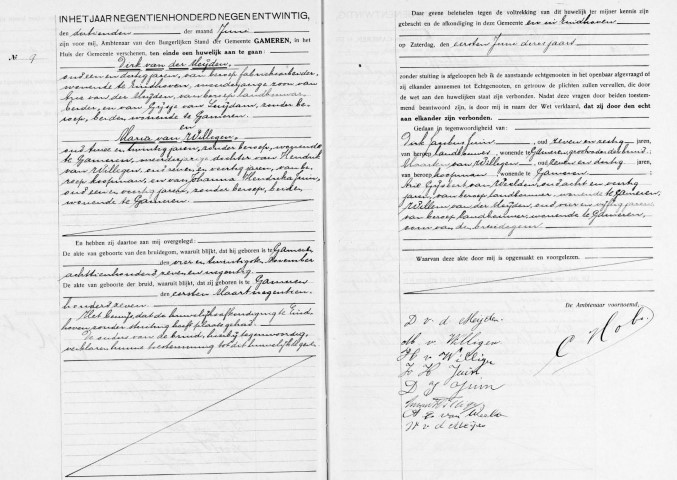 IN HET JAAR NEGENTIENHONDERD NEGEN EN TWINTIG,
den dertienden der maand Juni
zijn voor mij, Ambtenaar van den Burgerlijken Stand der Gemeente GAMEREN, in het
Huis der Gemeente verschenen, ten einde een huwelijk aan te gaan:
Nº 9
Dirk van der Meijden,
oud een en dertig jaren, van beroep fabrieksarbeider,
wonende te Eindhoven, meerderjarige zoon van
van der Meijden, van beroep landbouwer,
en van van zonder be-
roep, beiden wonende te Gameren.
en
Maria van Willigen,
oud twee en twintig jaren, zonder beroep, wonende
te Gameren, meerderjarige dochter van Hendrik
van Willigen, oud zeven en veertig jaren, van be-
roep koopman, en van Johanna Hendrika Juin,
oud een en veertig jaren, zonder beroep, beiden
wonende te Gameren.
En hebben zij daartoe aan mij overgelegd:
De akte van geboorte van den bruidegom, waaruit blijkt, dat hij geboren is te Gameren
den vier en twintigsten November
achttienhonderd zeven en negentig.
De akte van geboorte der bruid, waaruit blijkt, dat zij geboren is te Gameren
den eersten Maart negentien-
honderd zeven.
Het bewijs, dat de huwelijksafkondiging te Eind-
hoven zonder stuiting heeft plaats gehad.
De ouders van de bruid, hierbij tegenwoordig,
verklaren hunne toestemming tot dit huwelijk te geven.
Daar geene beletselen tegen de voltrekking van dit huwelijk ter mijner kennis zijn
gebracht en de afkondiging in deze Gemeente en in Eindhoven
op Zaterdag, den eersten Juni dezes jaars
zonder stuiting is afgeloopen heb ik de aanstaande echtgenooten in het openbaar afgevraagd of
zij elkander aannemen tot Echtgenooten, en getrouw de plichten zullen vervullen, die door
de wet aan den huwelijken staat zijn verbonden. Nadat deze vragen door beiden toestem-
mend beantwoord zijn, is door mij in naam der Wet verklaard, dat zij door den echt
aan elkander zijn verbonden.
Gedaan in tegenwoordigheid van:
Dirk Juin, oud zeven en zestig jaren,
van beroep landbouwer, wonende te Gameren, grootvader der bruid,
Maarten van Willigen, oud zeven en dertig jaren,
van beroep koopman, wonende te Gameren,
Gijsbert van oud acht en veertig
jaren, van beroep landbouwer, wonende te Gameren,
Willem van der Meijden, oud vier en vijftig jaren,
van beroep landbouwer, wonende te Gameren,
oom van den bruidegom
Waarvan deze akte door mij is opgemaakt en voorgelezen.
De Ambtenaar voornoemd,
D v. d Meijden
M. v. Willigen
H v Willigen
J H Juin
D J Juin
W v d Meijden